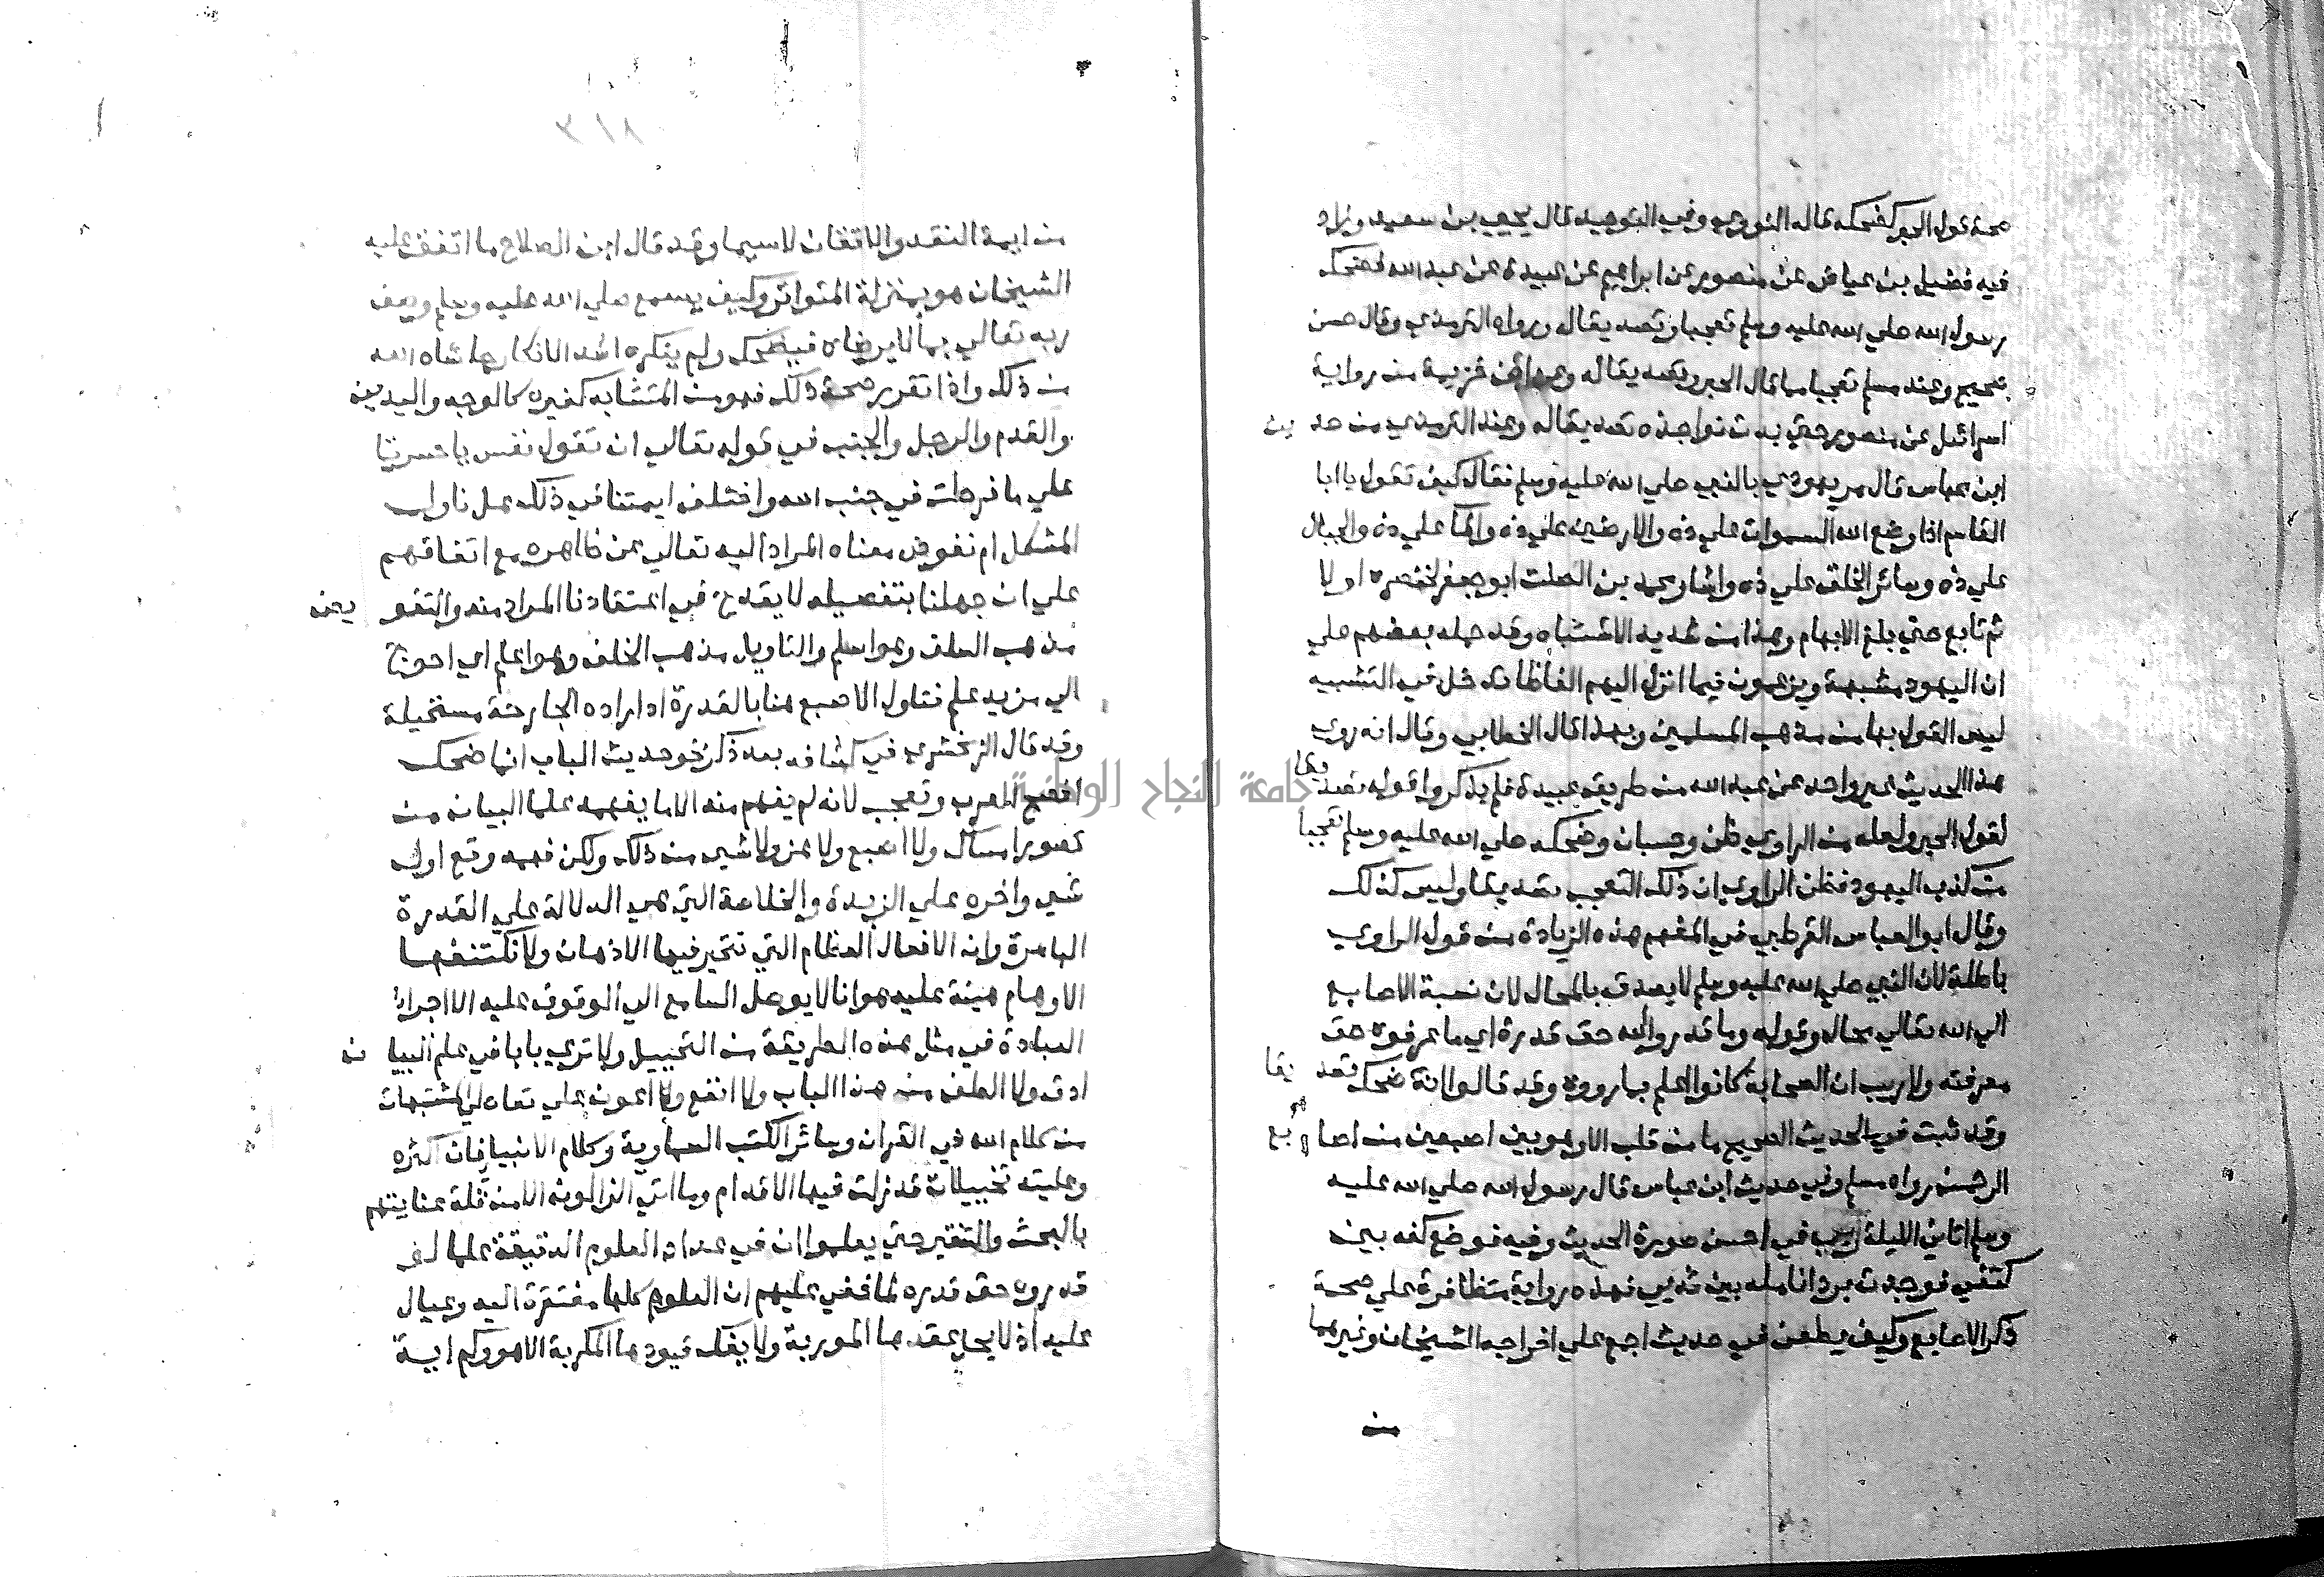 صحة قول الحبر كضحكه قاله النووي وفي التوحيد قال يحيى بن سعيد وزاد
فيه فضيل بن عياض عن منصور عن ابراهيم عن عبيدة عن عبد الله فضحك
رسول الله صلي الله عليه وسلم تعجبا وتصديقا له ورواه الترمذي وقال حسن
صحيح وعند مسلم تعجبا مما قال الحبر وتصديقا له وعند ابن خزيمة من رواية
اسرائيل عن منصور حتي بدت نواجذه تصديقا له وعند الترمذي من حديث
ابن عباس قال مر يهودي بالنبي صلي الله عليه وسلم فقال كيف تقول يا ابا
القاسم اذا وضع الله السموات علي ذه والارضين علي ذه والما علي ذه والجبال
علي ذه وسائر الخلق علي ذه واشار محمد بن الصلت ابو جعفر بخنصره اولا
ثم تابع حتي بلغ الابهام وهذا من شديد الاشتباه وقد حمله بعضهم علي
ان اليهود مشبهة ويزعمون فيما انزل اليهم الفاظا تدخل في التشبيه
ليس القول بها من مذهب المسلمين وبهذا قال الخطابي وقال انه روي
هذا الحديث غير واحد عن عبد الله من طريق عبيدة فلم يذكروا قوله تصديقا
لقول الحبر ولعله من الراوي ظن وحسبان وضحكه صلي الله عليه وسلم تعجبا
من كذب اليهود فظن الراوي ان ذلك التعجب تصديقا وليس كذلك
وقال ابو العباس القرطبي في المفهم هذه الزيادة من قول الراوي
باطلة لان النبي صلي الله عليه وسلم لا يصدق بالمحال لان نسبة الاصابع
الي الله تعالي محال وقوله وما قدروا الله حق قدره اي ما عرفوه حق
معرفته ولا ريب ان الصحابة كانوا اعلم بما رووه وقد قالوا انه ضحك تصديقا
وقد ثبت في الحديث الصحيح ما من قلب الا وهو بين اصبعين من اصابع
الرحمن رواه مسلم وفي حديث ابن عباس قال رسول الله صلي الله عليه
وسلم اتاني الليلة ربي في احسن صورة الحديث وفيه فوضع كفه بين
كتفي فوجدت برد انامله بين ثديي فهذه رواية متظافرة علي صحة
ذكر الاصابع وكيف يطعن في حديث اجمع علي اخراجه الشيخان وغيرهما
من
٣١٨
من ايمة النقد والاتقان لاسيما وقد قال ابن الصلاح ما اتفق عليه
الشيخان هو بمنزلة المتواتر وكيف يسمع صلي الله عليه وسلم وصف
ربه تعالي بما لا يرضاه فيضحك ولم ينكره اشد الانكار حاشاه الله
من ذلك واذا تقرر صحة ذلك فهو من المتشابه كغيره كالوجه واليدين
والقدم والرجل والجنب في قوله تعالي ان تقول نفس يا حسرتا
علي ما فرطت في جنب الله واختلف ايمتنا في ذلك هل ناول
المشكل ام نفوض معناه المراد اليه تعالي عن ظاهره مع اتفاقهم
علي ان جهلنا بتفصيله لا يقدح في اعتقادنا المراد منه والتفويض
مذهب السلف وهو اسلم والتاويل مذهب الخلف وهو اعلم اي احوج
الي مزيد علم فتاول الاصبع هنا بالقدرة اذ اراده الجارحة مستحيلة
وقد قال الزمخشري في كشافه بعد ذكر نحو حديث الباب انما ضحك
افصح العرب وتعجب لانه لم يفهم منه الا ما يفهمه علما البيان من
تصور امساك ولا اصبع ولا هز ولا شي من ذلك ولكن فهمه وقع اول
شي واخره علي الزبدة والخلاصة التي هي الدلالة علي القدرة
الباهرة وان الافعال العظام التي تتحير فيها الاذهان ولا تكتنفها
الاوهام هينة عليه هوانا لا يوصل السامع الي الوقوف عليه الا اجراء
العبارة في مثل هذه الطريقة من التخييل ولا تري بابا في علم البيان
ادق ولا الطف من هذا الباب ولا انفع ولا اعون علي تعاطي المشتبهات
من كلام الله في القران وسائر الكتب السماوية وكلام الانبيا فان اكثره
وعليته تخييلات قد زلت فيها الاقدام وما اتي الزالون الا من قلة عنايتهم
بالبحث والتنقير حتي يعلموا ان في عداد العلوم الدقيقة علما لو
قدروه حق قدره لما خفي عليهم ان العلوم كلها مفتقرة اليه وعيال
عليه اذ لا يحل عقدها الموربة ولا يفك قيودها المكربة الا هو وكم اية
جامعة النجاح الوطنية